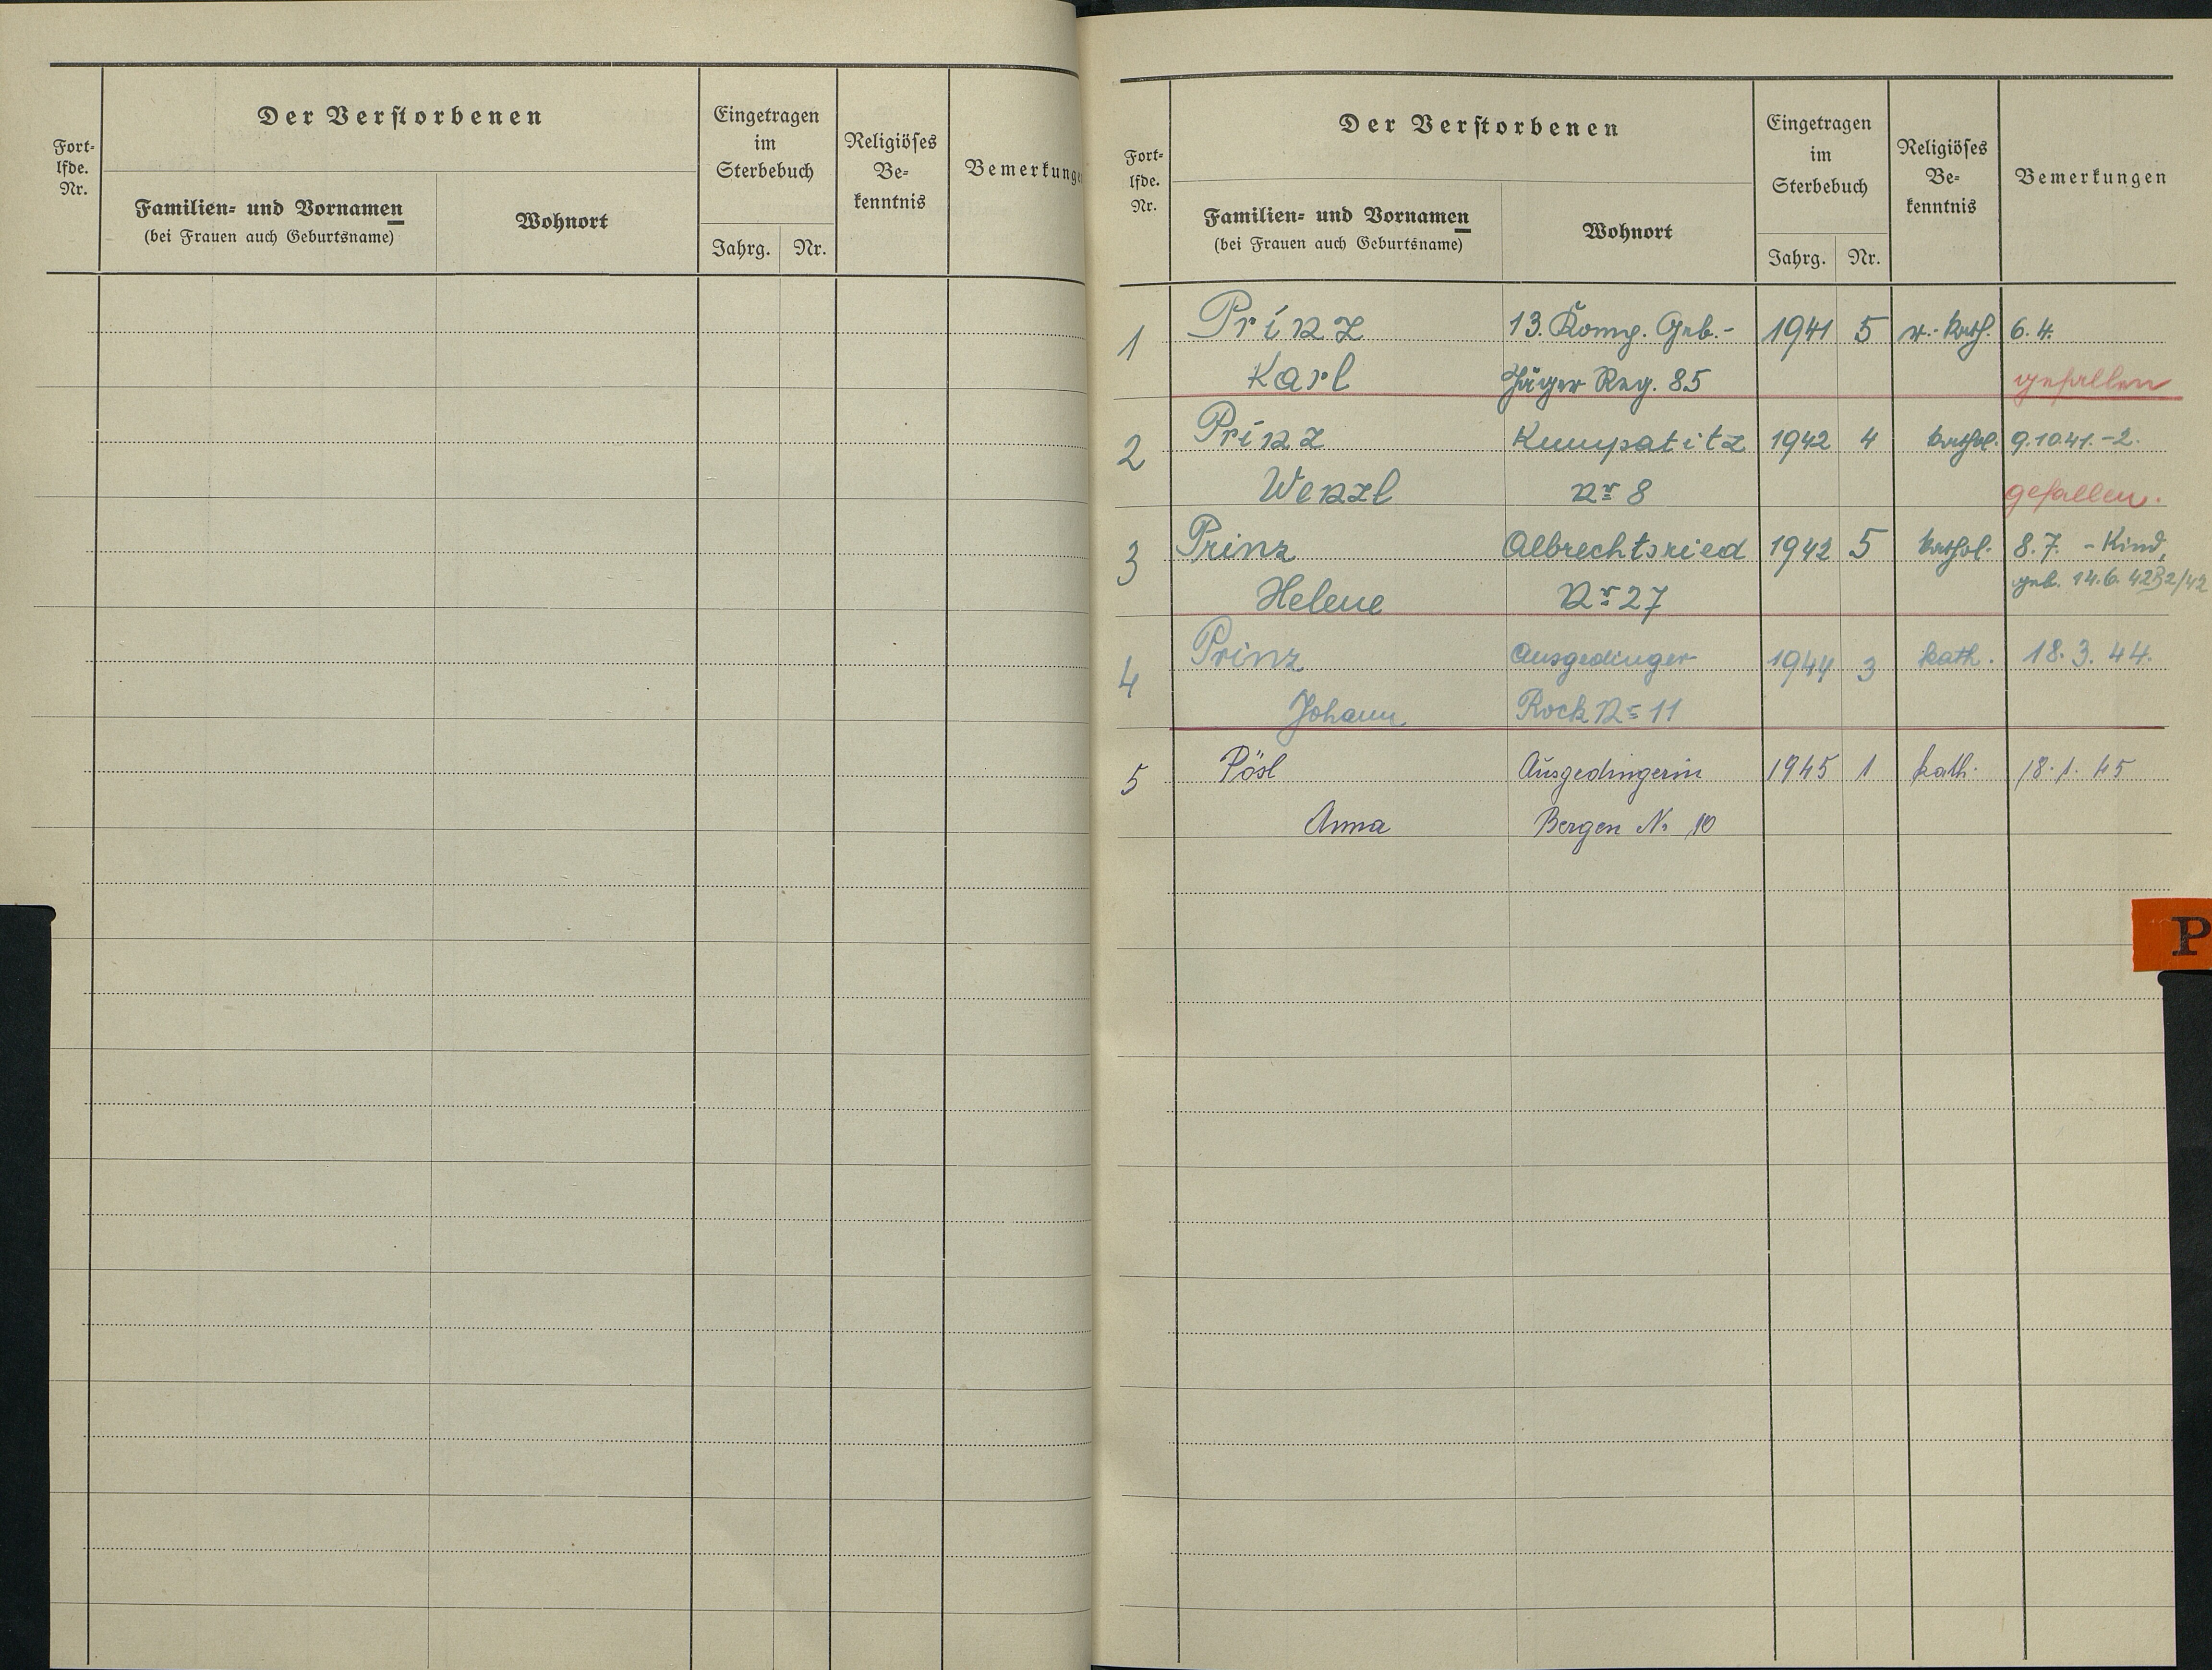 Fort-
lfde.
Nr.
Der Verstorbenen
Familien- und Vornamen
(bei Frauen auch Geburtsname)
Wohnort
Eingetragen
im
Sterbebuch
Jahrg. Nr.
Religiöses
Be-
kenntnis
Bemerkunge
Fort-
lfde.
Nr.
Der Verstorbenen
Familien- und Vornamen
(bei Frauen auch Geburtsname)
Wohnort
Eingetragen
im
Sterbebuch
Jahrg. Nr.
Religiöses
Be-
kenntnis
Bemerkungen
1 Prinz 13. Komp. Geb.- 1941 5 r.-kath. 6.4.
Karl Jäger Reg. 85 gefallen
2 Prinz Kumpatitz 1942 4 kathol. 9.10.41.-2.
Wenzl Nr 8 gefallen.
3 Prinz Albrechtsried 1942 5 kathol. 8.7. - Kind,
Helene Nr 27 geb. 14.6.42 32/42
4 Prinz Ausgedinger 1944 3 kath. 18.3.44.
Johann Rock Nr 11
5 Pösl Ausgedingerin 1945 1 kath. 18.1.45
Anna Bergen No 10
P